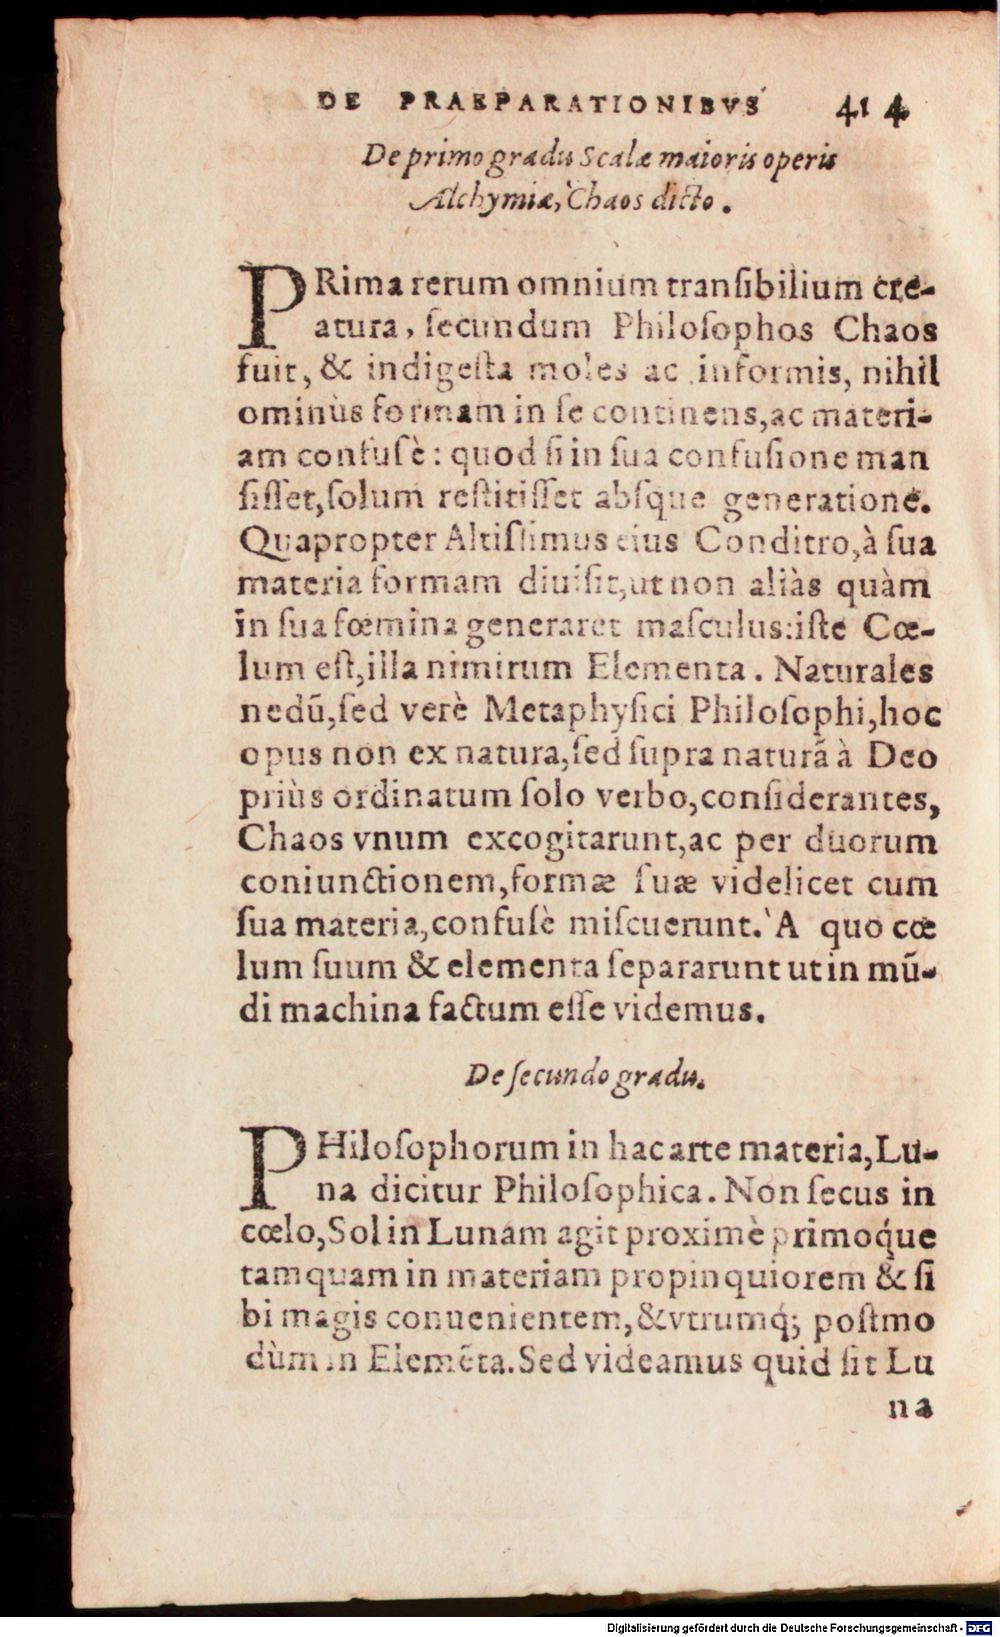 DE PRAEPARATIONIBVS 414
De primo gradu Scalæ maioris operis
Alchymiæ, Chaos dicto.
PRima rerum omnium transibilium cre-
atura, ſecundum Philoſophos Chaos
fuit, & indigeſta moles ac informis, nihil
ominùs formam in ſe continens, ac materi-
am confuſè: quod ſi in ſua confuſione man
ſiſſet, ſolum reſtitiſſet abſque generatione.
Quapropter Altiſſimus eius Conditro, à ſua
materia formam diuiſit, ut non aliàs quàm
in ſua fœmina generaret maſculus: iſte Cœ-
lum eſt, illa nimirum Elementa. Naturales
nedū, ſed verè Metaphyſici Philoſophi, hoc
opus non ex natura, ſed ſupra naturā à Deo
priùs ordinatum ſolo verbo, conſiderantes,
Chaos vnum excogitarunt, ac per duorum
coniunctionem, formæ ſuæ videlicet cum
ſua materia, confuſè miſcuerunt. À quo cœ
lum ſuum & elementa ſepararunt ut in mū-
di machina factum eſſe videmus.
De ſecundo gradu.
PHiloſophorum in hac arte materia, Lu-
na dicitur Philoſophica. Non ſecus in
cœlo, Sol in Lunam agit proximè primoq́ue
tamquam in materiam propinquiorem & ſi
bi magis conuenientem, & vtrumq́; poſtmo
dùm in Elemēta. Sed videamus quid ſit Lu
na
Digitalisierung gefördert durch die Deutsche Forschungsgemeinschaft - DFG